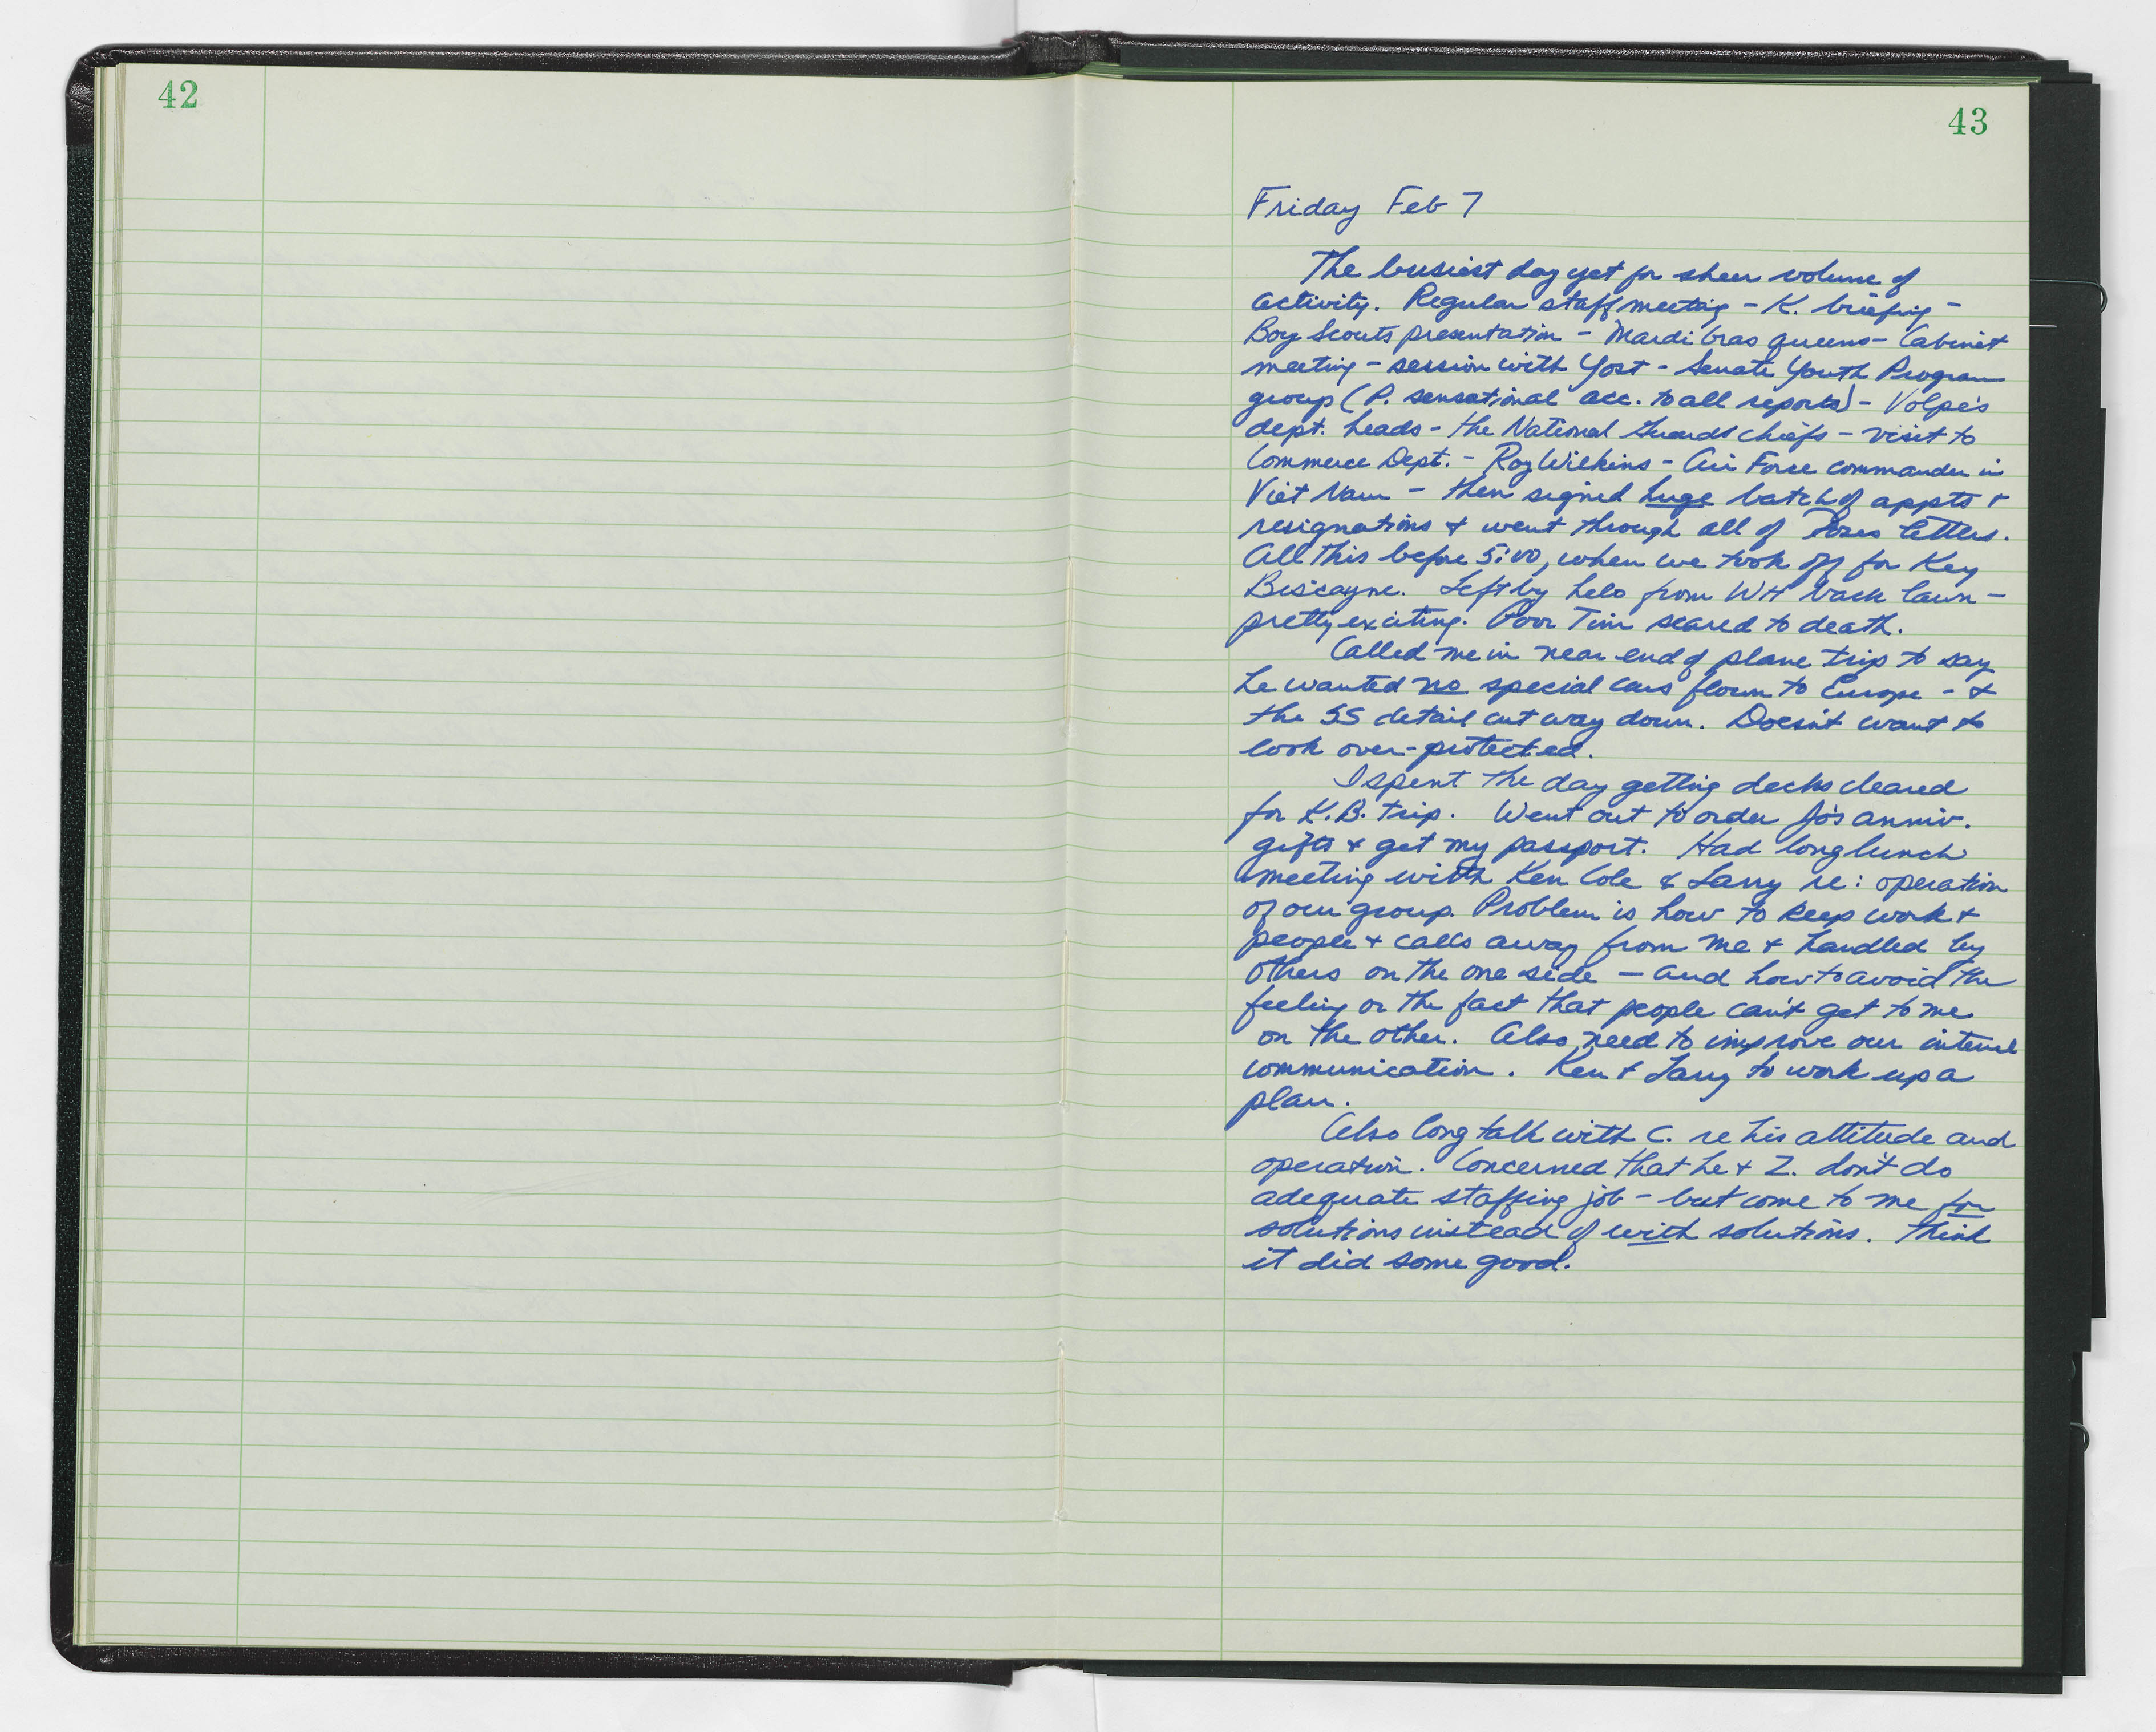 42
43
Friday Feb 7
The busiest day yet for sheer volume of
activity. Regular staff meeting - K. briefing -
Boy Scouts presentation - Mardi Gras queens - Cabinet
meeting - session with Yost - Senate Youth Program
group (P. sensational acc. to all reports) - Volpe's
dept. heads - the National Guards chiefs - visit to
Commerce Dept. - Roy Wilkins - Air Force commander in
Viet Nam - then signed huge batch of appts +
resignations + went through all of Roses letters.
All this before 5:00, when we took off for Key
Biscayne. Left by helo from WH back lawn -
pretty exciting. Poor Tim scared to death.
Called me in near end of plane trip to say
he wanted no special cars flown to Europe - +
the SS detail cut way down. Doesn't want to
look over-protected.
I spent the day getting decks cleared
for K.B. trip. Went out to order Jo's anniv.
gifts + get my passport. Had long lunch
meeting with Ken Cole & Larry re: operation
of our group. Problem is how to keep work +
people + calls away from me + handled by
others on the one side - and how to avoid the
feeling or the fact that people can't get to me
on the other. Also need to improve our internal
communication. Ken + Larry to work up a
plan.
Also long talk with C. re his attitude and
operation. Concerned that he + Z. don't do
adequate staffing job - but come to me for
solutions instead of with solutions. Think
it did some good.